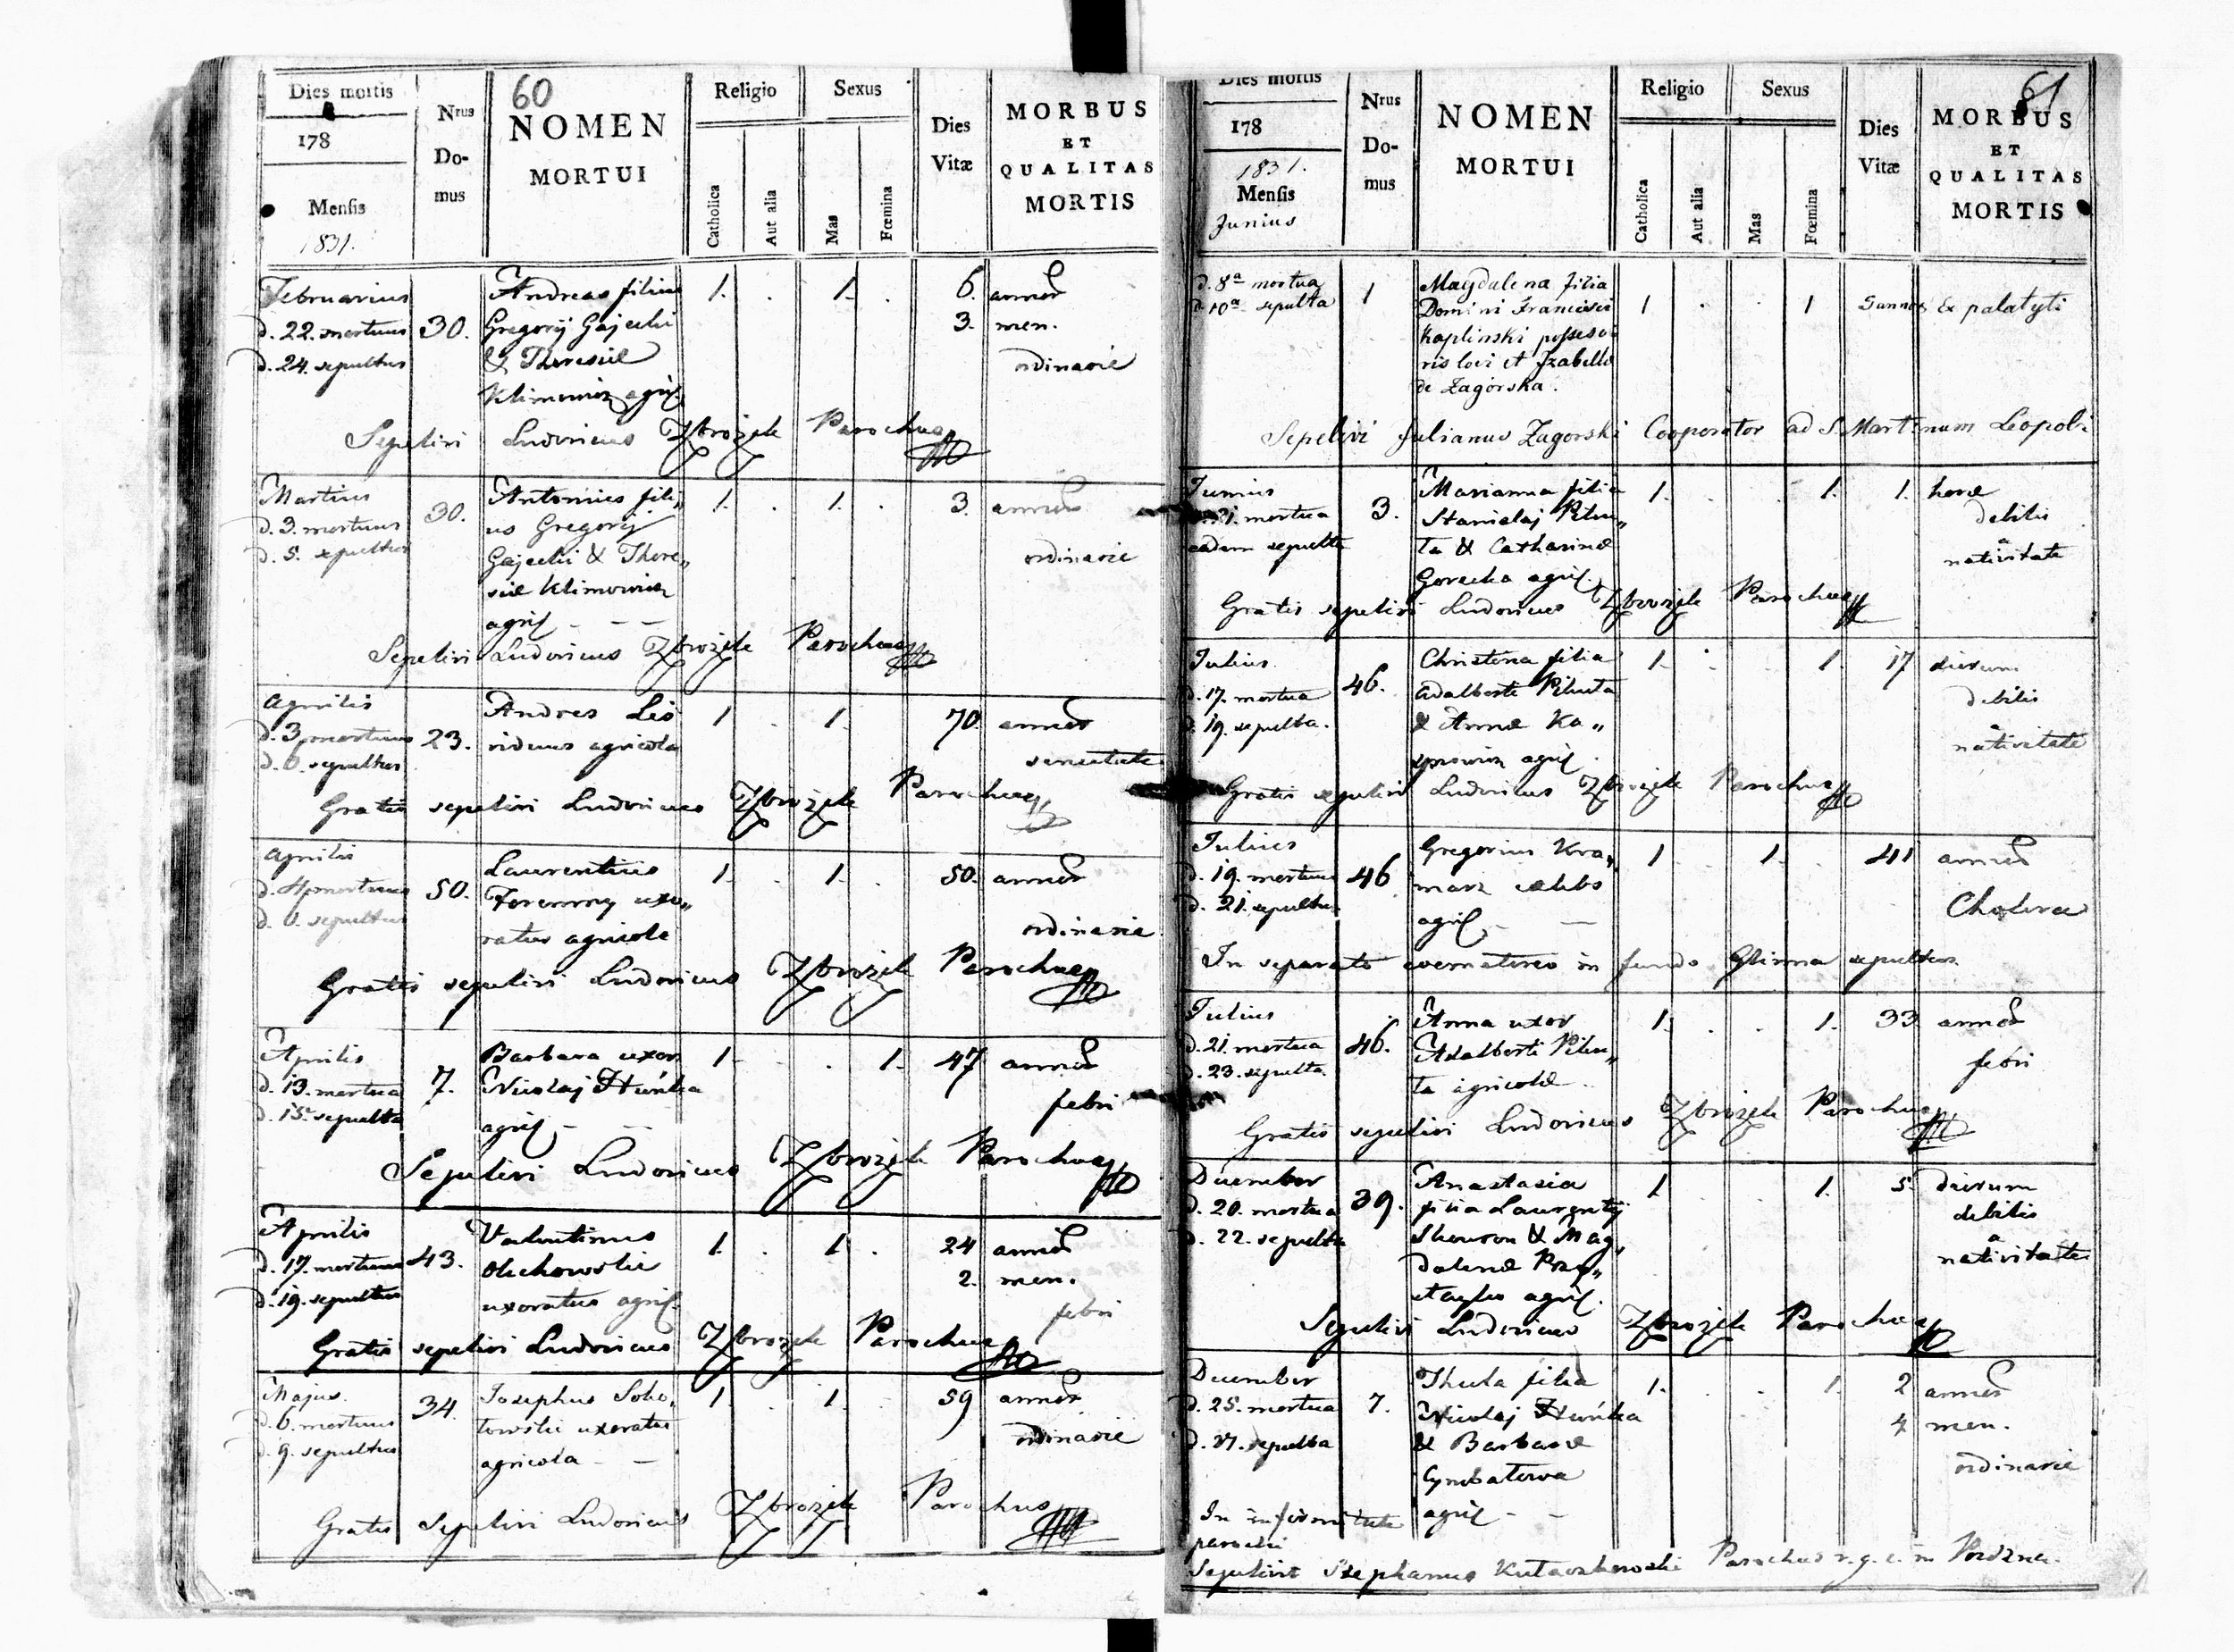 60
Dies mortis
178
Mensis
1831.
Nrus
Do-
mus
NOMEN
MORTUI
Religio
Catholica
Aut alia
Sexus
Mas
Fœmina
Dies
Vitæ
MORBUS
ET
QUALITAS
MORTIS
Februarius
d. 22. mortuus
d. 24. sepultus
30.
Andreas filius
Gregorij Gajecki
& Theresiæ
Klimowicz agric.
1. . 1. .
6. annor
3. men.
ordinarie
Sepelivi Ludovicus Zbrożek Parochus
Martius
d. 3. mortuus
d. 5. sepultus
30.
Antonius fili„
us Gregorij
Gajecki & There„
siæ Klimowicz
agric. - - -
1. . 1. .
3. annor
ordinarie
Sepelivi Ludovicus Zbrożek Parochus
Aprilis
d. 3 mortuus
d. sepultus
23.
Andreas Lis
viduus agricola
1. . 1.
70. annor
senectute
Gratis sepelivi Ludovicus Zbrożek Parochus
Aprilis
d. mortuus
d. sepultus
50.
Laurentius
uxo„
ratus agricola
1. . 1. .
50. annor
ordinarie
Gratis sepelivi Ludovicus Zbrożek Parochus
Aprilis
d. 13. mortua
d. 15. sepulta
7.
Barbara uxor
Nicolaj
agric. -
1. . . 1.
47 annor
febri
Sepelivi Ludovicus Zbrożek Parochus
Aprilis
d. 17. mortuus
d. 19. sepultus
43.
Valentinus
Olichowski
uxoratus agric.
1. . 1. .
24 annor
2. men.
febri
Gratis sepelivi Ludovicus Zbrożek Parochus
Majus.
d. 6. mortuus
d. 9. sepultus
34.
Josephus Soko„
towski uxoratus
agricola - -
1. . 1. .
59 annor
ordinarie
Gratis sepelivi Ludovicus Zbrożek Parochus
61
Dies mortis
178
1831.
Mensis
Junius
Nrus
Do-
mus
NOMEN
MORTUI
Religio
Catholica
Aut alia
Sexus
Mas
Fœmina
Dies
Vitæ
MORBUS
ET
QUALITAS
MORTIS
d. 8a mortua
d. 10a sepulta
1
Magdalena filia
Domini Francisci
Kaplinski possesso
ris loci et Izabellæ
de Zagorska.
1 . . 1
5 annos
Sepelivi Julianus Zagorski Cooperator ad S. Martinum Leopoli
Junius
mortua
eadem sepulta
3.
Marianna filia
Stanislaj Pilu„
ta & Catharinæ
Gorecka agric.
1. . . 1.
1. horæ
debilis
a
nativitate
Gratis sepelivi Ludovicus Zbrożek Parochus
Julius.
d. 17. mortua
d. 19. sepulta.
46.
Christina filia
Adalberti Piluta
& Annæ Ka„
sprowicz agric.
1. . . 1.
17 dierum
debilis
a
nativitate
Gratis sepelivi Ludovicus Zbrożek Parochus
Julius
d. 19. mortuus
d. 21. sepultus
46
Gregorius Kra„
marz cælebs
agric. - -
1 . 1. .
41 annor
Cholera
In separato coemeterio in fundo Glinna sepultus.
Julius
d. 21. mortua
d. 23. sepulta
46.
Anna uxor
Adalberti Pilu„
ta agricolæ.
1. . . 1.
33 annor
febri
Gratis sepelivi Ludovicus Zbrożek Parochus
December
d. 20. mortua
d. 22. sepulta
39.
Anastasia
filia Laurentij
Skowron & Mag„
dalenæ Prze„
agric.
1 . . 1.
5. dierum
debilis
a
nativitate
Sepelivi Ludovicus Zbrożek Parochus
December
d. 25. mortua
d. 27. sepulta
7.
Thecla filia
Nicolaj
& Barbaræ
Cymbalowa
agric. - -
1. . . 1.
2 annor
4 men.
ordinarie
In infirmitate
parochi
Sepelivit Stephanus Parochus r. g. c. in